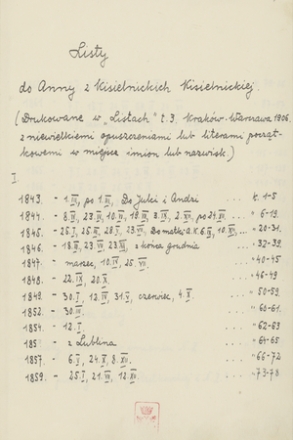 Listy
do Anny z Kisielnickich Kisielnickiej.
(Drukowane w „Listach” t. 3. Kraków-Warszawa 1906.
z niewielkiemi opuszczeniami lub literami począt-
kowemi w miejsce imion lub nazwisk)
I
1843. - 1.IX, po 1.IX, Do Julci i Andzi . k. 1-5
1844. - 8. , 23. , 10. , 18. , 3. , 2. , po 24. ... " 6-19.
1845. - 25.I, 25. , 28.I, 23. , Do matki A.K. 6. , 10. ... " 20-31.
1846. - 18. , 23. , 23. , z końca grudnia ... " 32-39.
1847. - marzec, 10.IV, 25. ... " 40-45
1848. - 22.IX, 20.X ... " 46-49
1849. - 30.I, 12. , 31.V, czerwiec, 4.X ... " 50-59.
1852. - 30. ... " 60-61.
1854. - 12.I ... " 62-63
185 : - z Lublina ... " 64-65
1857. - 6.I, 24.X, 8.XII. ... " 66-72
1859. - 25.I, 21. , 12.XII. ... " 73-78